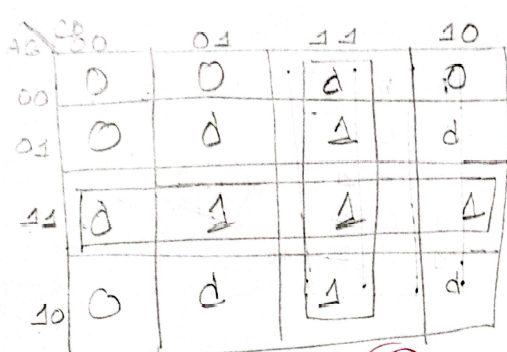 CD
AB 00 01 11 10
00 0 0 d 0
01 0 d 1 d
11 d 1 1 1
10 0 d 1 d